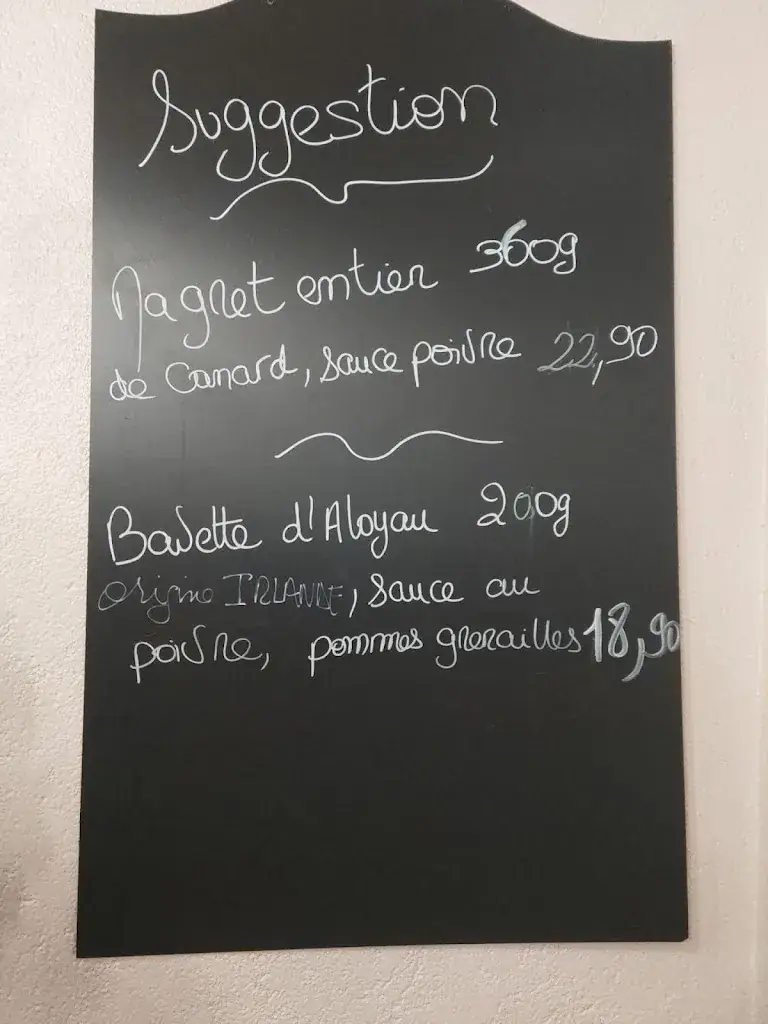 Suggestion
Magret entier 360g
de Canard, sauce poivre 22,90
Bavette d'Aloyau 200g
origine IRLANDE, sauce au
poivre, pommes grenailles 18,90